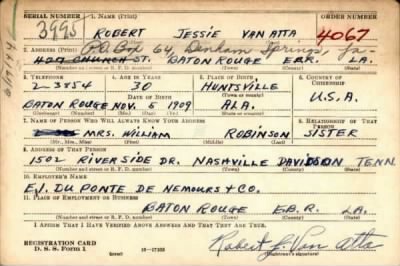 SERIAL NUMBER 1. NAME (Print) ORDER NUMBER
3995 ROBERT JESSIE VAN ATTA 4067
(First) (Middle) (Last)
2. ADDRESS (Print) P.O. Box 64, Denham Springs, La-
427 CHURCH ST. BATON ROUGE E.B.R. LA.
(Number and street or R. F. D. number) (Town) (County) (State)
3. TELEPHONE 4. AGE IN YEARS 5. PLACE OF BIRTH 6. COUNTRY OF CITIZENSHIP
2-3854 30 HUNTSVILLE
DATE OF BIRTH (Town or county)
BATON ROUGE NOV. 5 1909 ALA. U.S.A.
(Exchange) (Number) (Mo.) (Day) (Yr.) (State or country)
7. NAME OF PERSON WHO WILL ALWAYS KNOW YOUR ADDRESS 8. RELATIONSHIP OF THAT PERSON
MRS. WILLIAM ROBINSON SISTER
(Mr., Mrs., Miss) (First) (Middle) (Last)
9. ADDRESS OF THAT PERSON
1502 RIVERSIDE DR. NASHVILLE DAVIDSON TENN.
(Number and street or R. F. D. number) (Town) (County) (State)
10. EMPLOYER'S NAME
E.I. DU PONTE DE NEMOURS & CO.
11. PLACE OF EMPLOYMENT OR BUSINESS
BATON ROUGE E.B.R. LA.
(Number and street or R. F. D. number) (Town) (County) (State)
I AFFIRM THAT I HAVE VERIFIED ABOVE ANSWERS AND THAT THEY ARE TRUE.
REGISTRATION CARD
D. S. S. Form 1 (over) 16-17105 Robert J. Van Atta
(Registrant's signature)